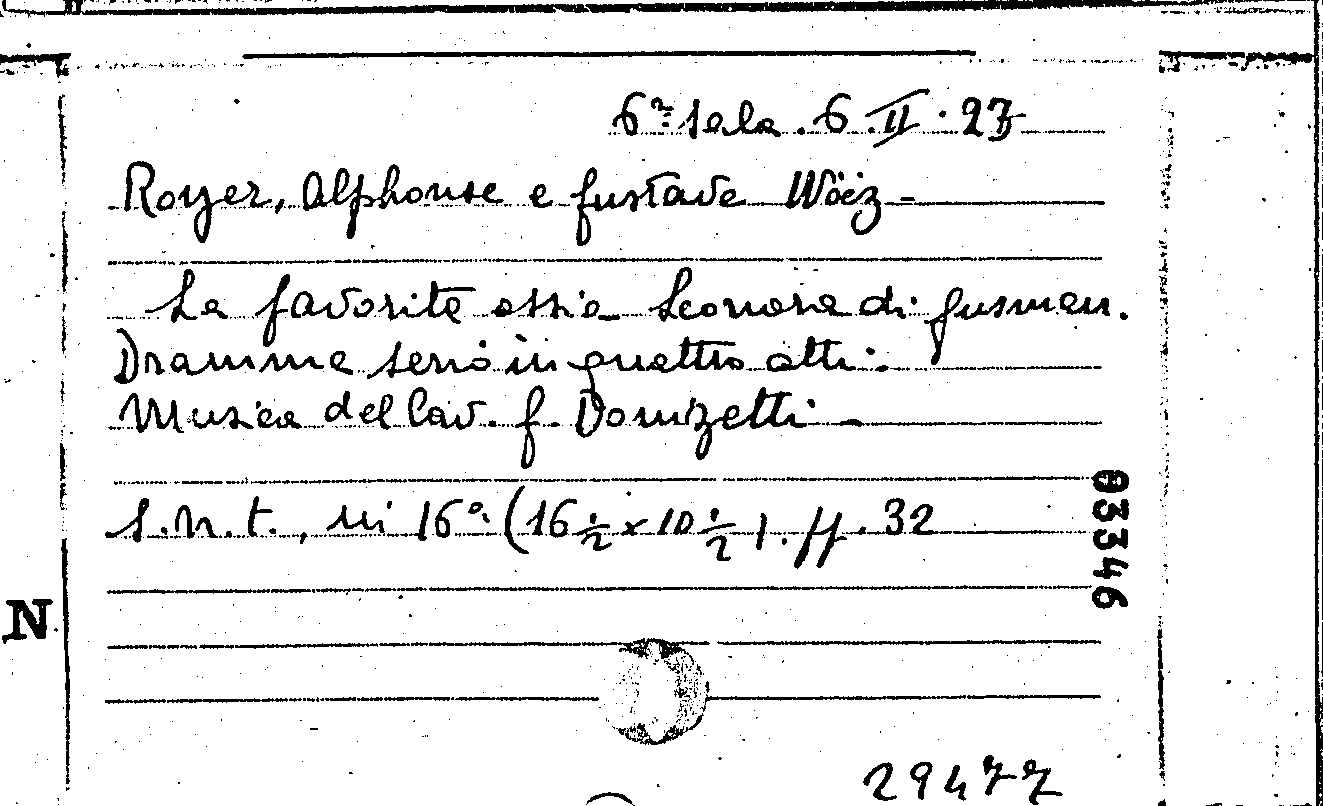 6ª sala. 6. II. 27
Royer, Alphonse e Gustave Wäez -
La favorite ossia Leonora di Gusman.
Dramma serio in quattro atti.
Musica del Cav. G. Donizetti -
S.n.t., in 16º (16 1/2 x 10 1/2). pp. 32
03346
N
29477